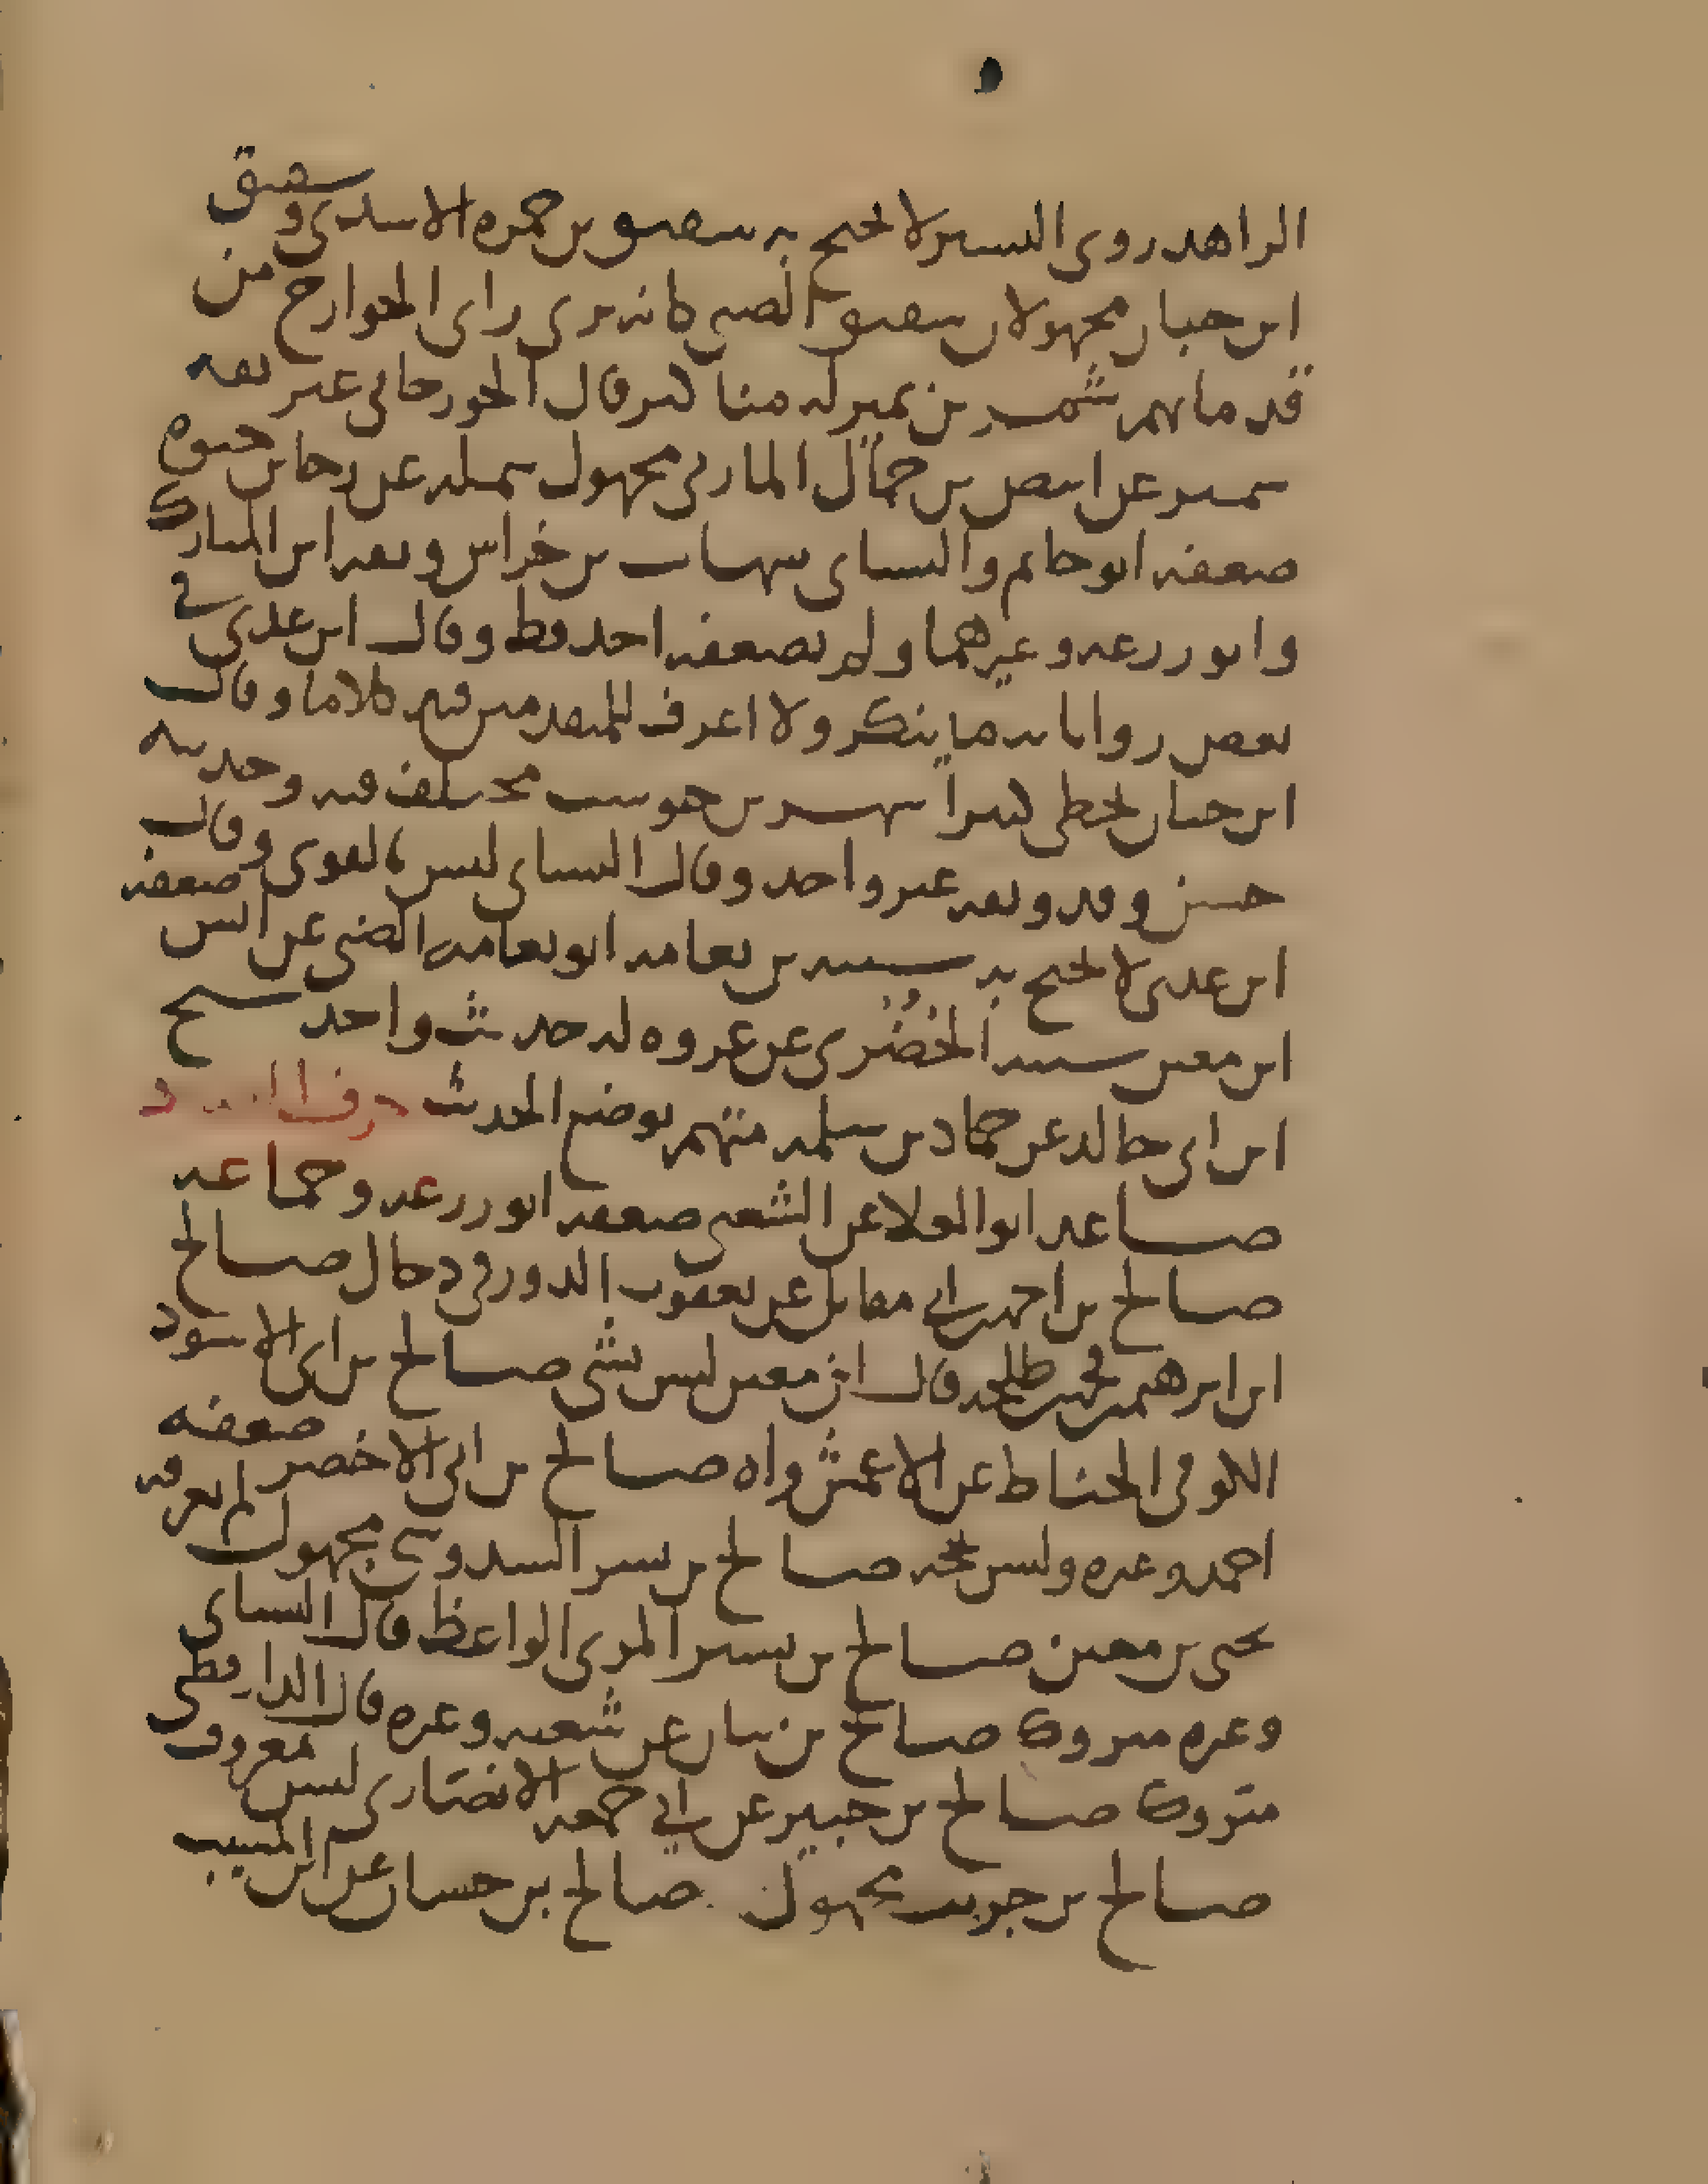 الزاهد روى اليسير لا يحتج به شقيق بن حمزة الاسدي وشقيق
ابن حبان مجهولان شقيق الضبي كان يرى راى الخوارج من
قدمائهم شمر بن نمير له مناكير قال الجوزجاني غير ثقة
سمير عن ابيض بن حمال الماربي مجهول سميله عن رجا بن حيوه
ضعفه ابو حاتم والنساى شهاب بن خراش وثقه ابن المبارك
وابو زرعه وغيرهما ولم يضعفه احد قط وقال ابن عدي في
بعض رواياته ما ينكر ولا اعرف للمتقدمين فيه كلاما وقال
ابن حبان يخطى كثيرا شهر بن حوشب مختلف فيه وحديثه
حسن وقد وثقه غير واحد وقال النساى ليس بالقوى وقال
ابن عدى لا يحتج به شيبه بن نعامه ابو نعامه الضبي عن انس ضعفه
ابن معين شيبه الخضري عن عروه له حديث واحد شيخ
ابن ابي خالد عن حماد بن سلمه متهم بوضع الحديث حرف الصاد
صاعد ابو العلا عن الشعبي ضعفه ابو زرعه وجماعه
صالح بن احمد بن ابي مقاتل عن يعقوب الدورقي دجال صالح
ابن ابرهيم بن محمد بن طلحه قال ابن معين ليس بشى صالح بن ابي الاسود
الكوفي الحناط عن الاعمش واه صالح بن ابي الاخضر ضعفه
احمد وغيره وليس بحجه صالح بن بسر السدوسي مجهول لم يعرفه
يحيى بن معين صالح بن بشير المري الواعظ قال النساى
وغيره متروك صالح بن بيان عن شعبه وغيره قال الدارقطني
متروك صالح بن جبير عن ابي جمعه الانصاري ليس بمعروف
صالح بن جريب مجهول صالح بن حسان عن ابن المسيب